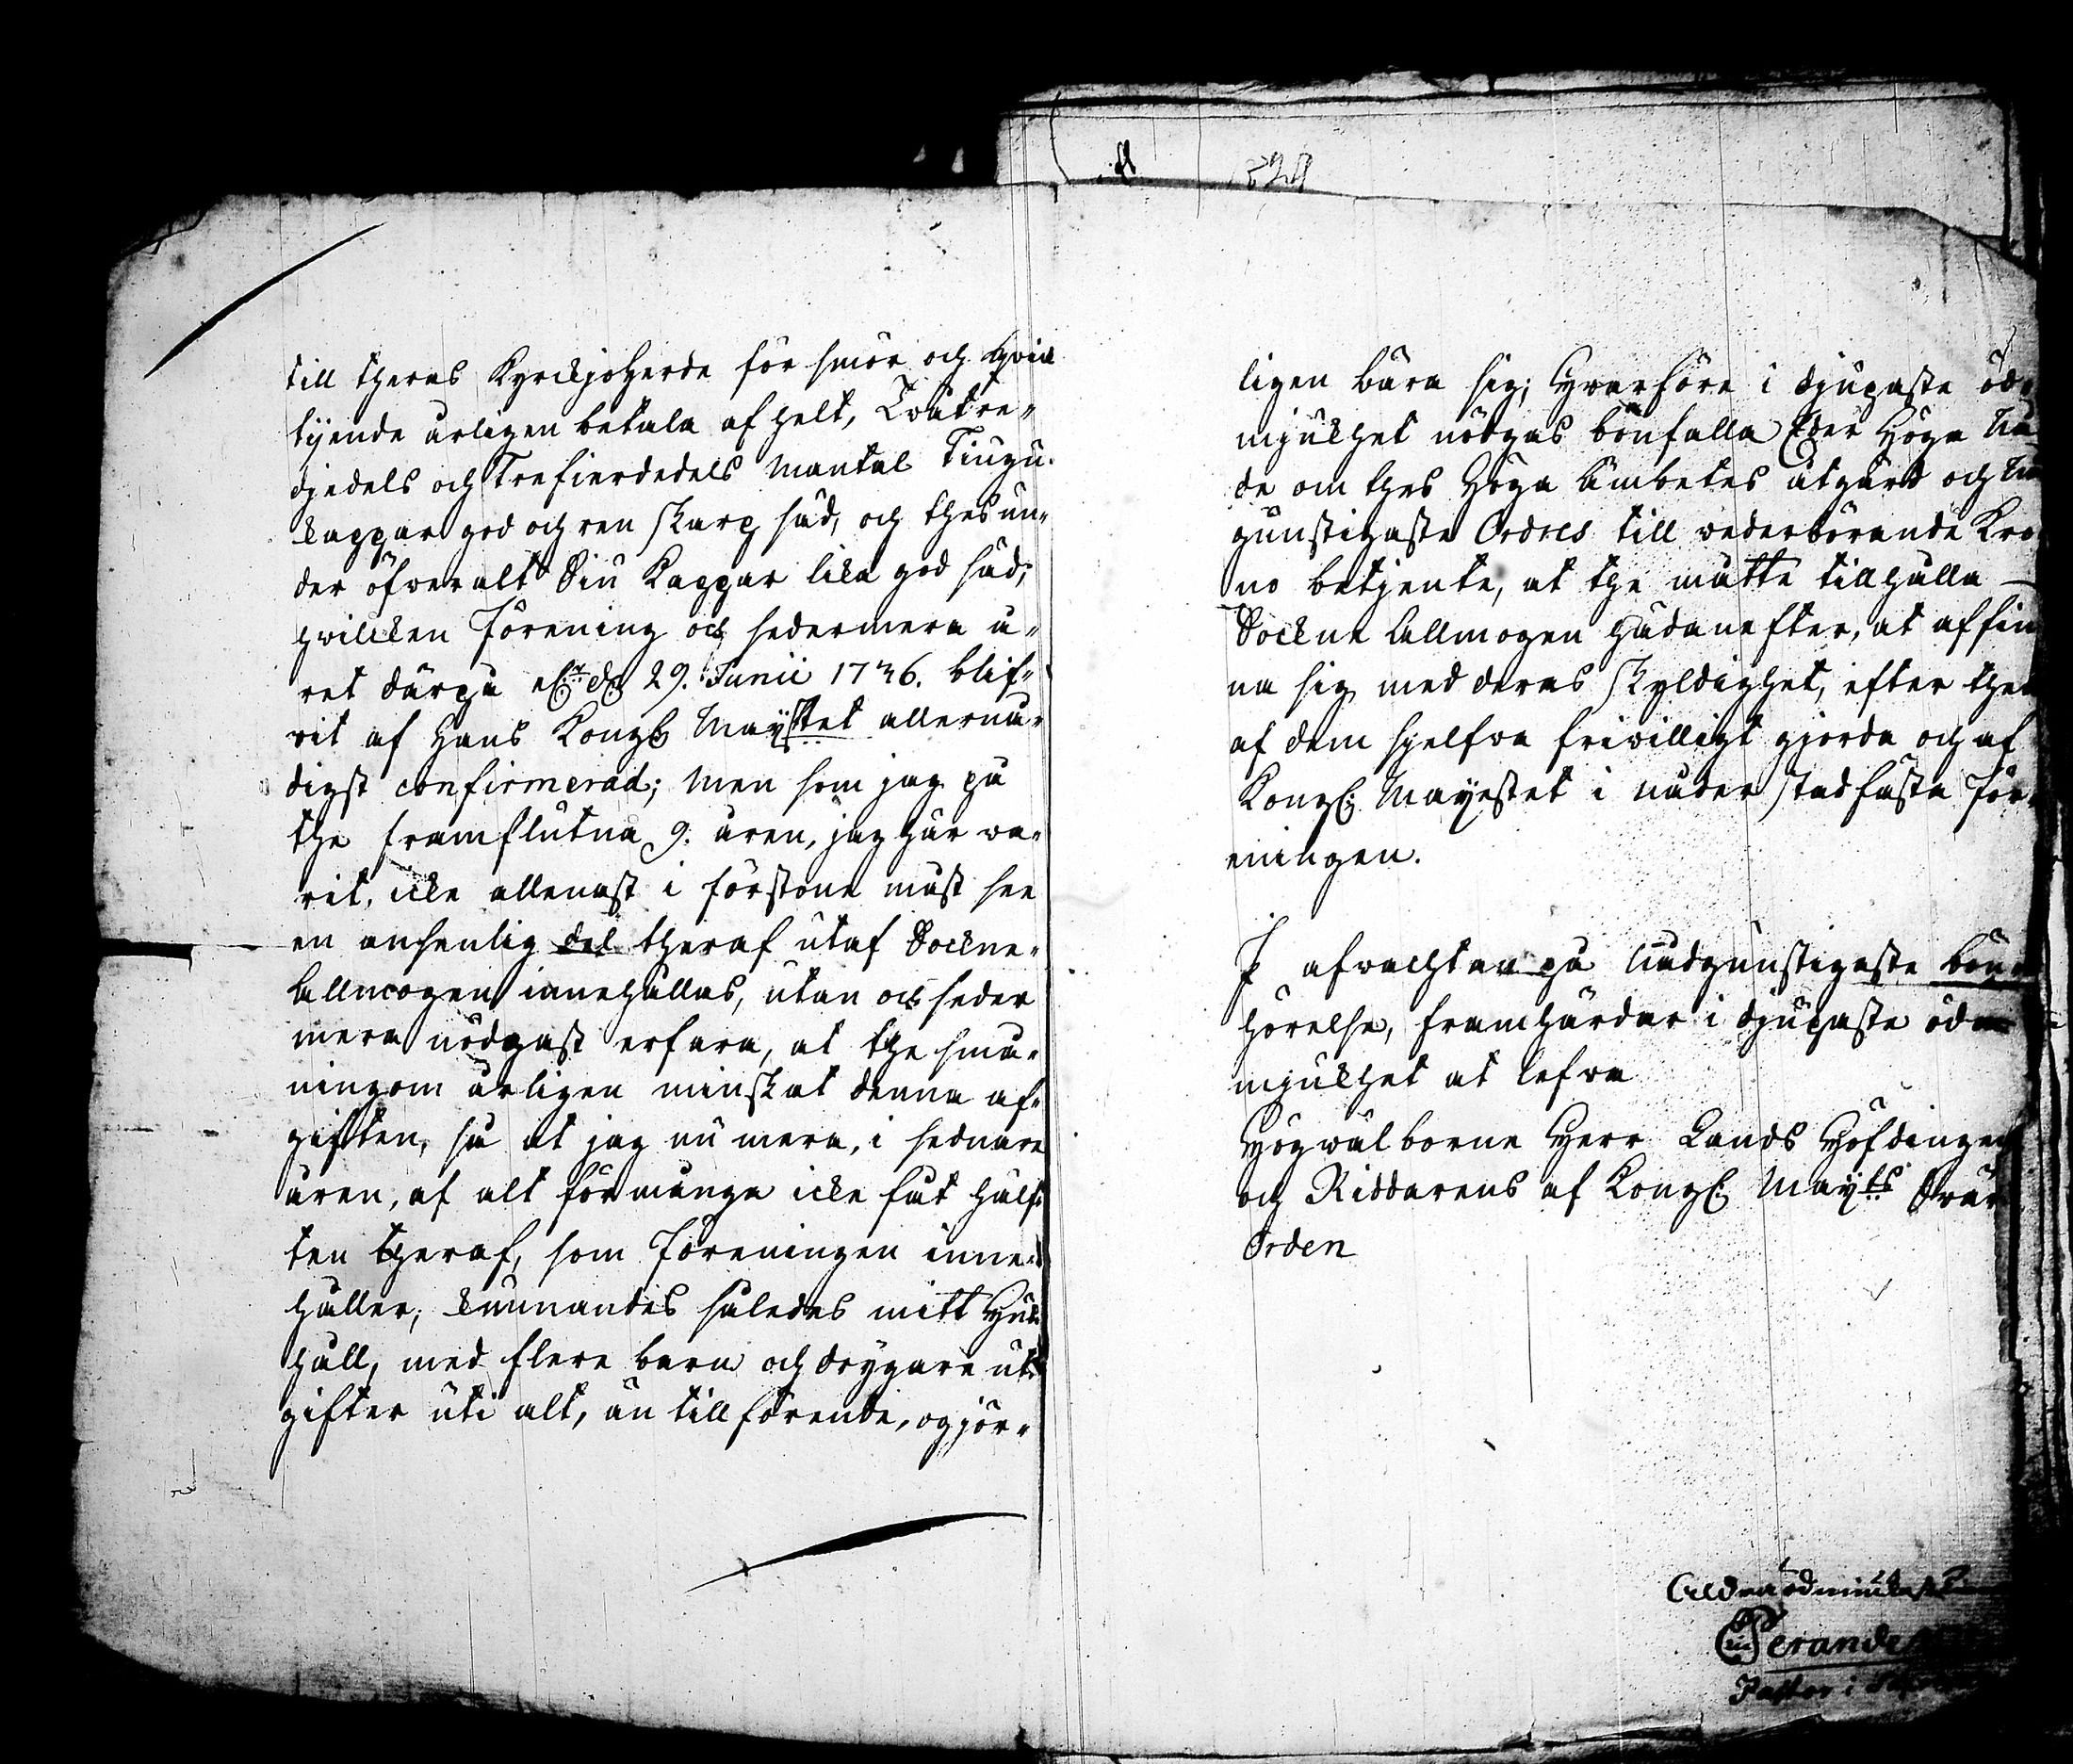 till theras Kyrckjoherde för smör och qvick
tijende årligen betala af helt, Tvåtre-
djedels och Trefierdedels Mantal Tiugu
kappar god och ren skarp säd, och thes un-
der öfveralt Siu Kappar lika god säd;
hvilcken Förening och sedermera å-
ret därpå d. 29. Junii 1736. blif-
vit af Hans Kongl. Mayestet allernå-
digst confirmerad; Men som jag på
the framflutna 9. åren, jag här va-
rit, icke allenast i förstone måst see
en ansenlig del theraf utaf Sockne-
Allmogen innehållas, utan ock seder
mera nödgast erfara, at the små-
ningom årligen minskat denna af-
giften, så at jag nu mera, i sednare
åren, af alt för många icke fåt hälf-
ten theraf, som Föreningen inne-
håller; kunnandes således mitt Hus
håll, med flere barn och drygare ut-
gifter uti alt, än tillförende, ogjör-
ligen bära sig; Hvarföre i djupaste öd-
mjukhet nödgas bönfalla Eder Höga Nå
de om thes Höga Ämbetes åtgärd och
gunstigaste Ordres till vederbörande Kro
no betjente, at the måtte tillhålla
Sockne Allmogen hädanefter, at affin
na sig med deras skyldighet, efter then
af dem sjelfva frivilligt gjorda och af
Kongl. Mayestet i nåder stadfästa För-
eningen.
I afvachtan på Nådgunstigaste bön
hörelse, framhärdar i djupaste öd
mjukhet at lefva
Högvälborne Herr Lands Höfdingens
och Riddarens af Kongl. Mayts Svär
Orden
Aldraödmiukaste
Serande
Pastor i